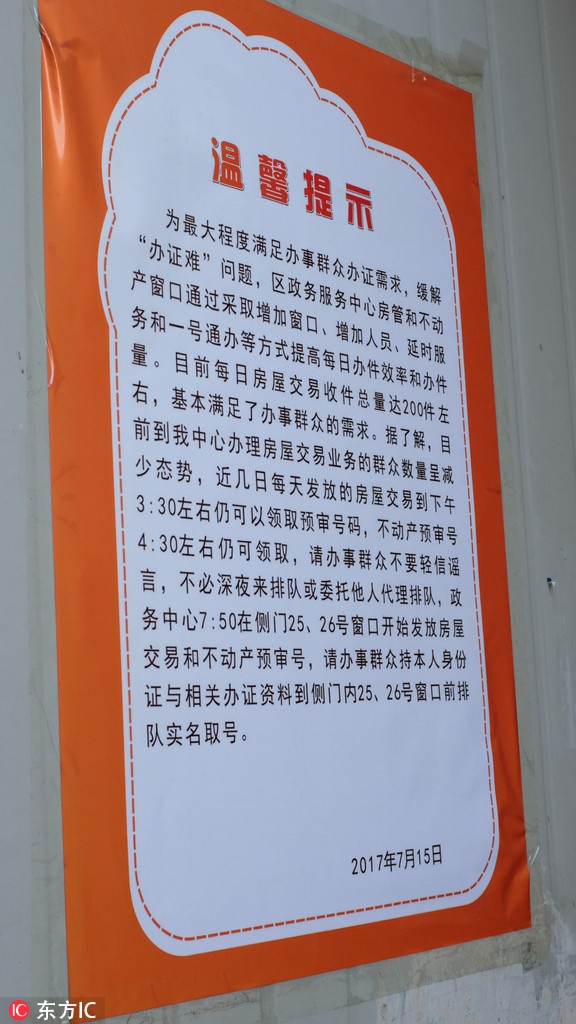 温馨提示
为最大程度满足办事群众办证需求，缓解
“办证难”问题，区政务服务中心房管和不动
产窗口通过采取增加窗口、增加人员、延时服
务和一号通办等方式提高每日办件效率和办件
量。目前每日房屋交易收件总量达200件左
右，基本满足了办事群众的需求。据了解，目
前到我中心办理房屋交易业务的群众数量呈减
少态势，近几日每天发放的房屋交易到下午
3:30左右仍可以领取预审号码，不动产预审号
4:30左右仍可领取，请办事群众不要轻信谣
言，不必深夜来排队或委托他人代理排队，政
务中心7:50在侧门25、26号窗口开始发放房屋
交易和不动产预审号，请办事群众持本人身份
证与相关办证资料到侧门内25、26号窗口前排
队实名取号。
2017年7月15日
IC 东方IC